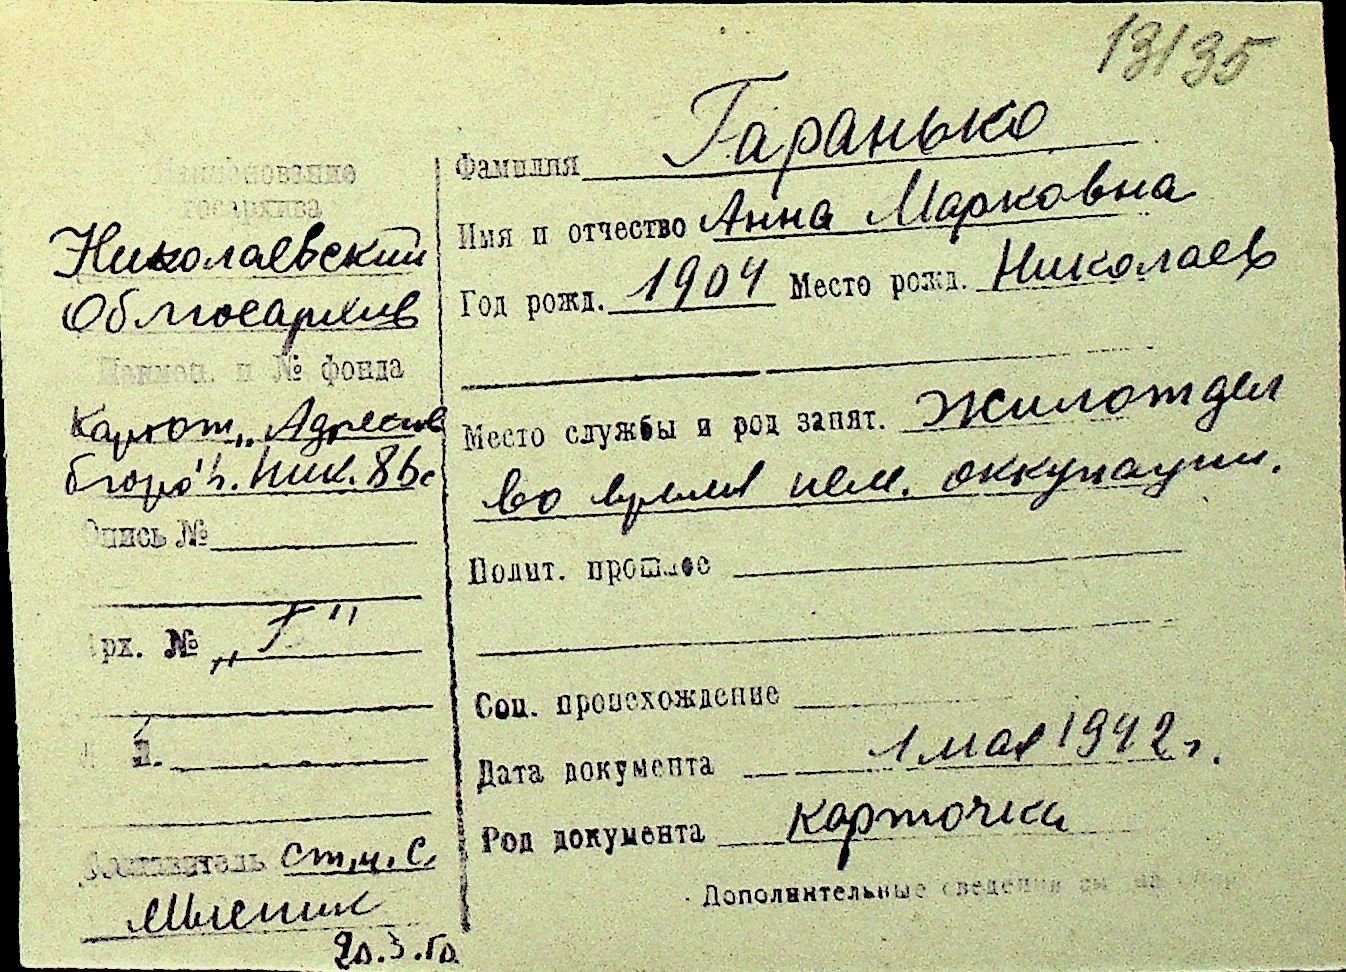 13135
Наименование
госархива
Николаевский
Облгосархив
Наимен. и № фонда
Картот. „Адресное
бюро" г. Ник. 86с
Опись №
Арх. № „Г"
л.
Составитель ст. н. с.
20.3.50
Фамилия Гаранько
Имя и отчество Анна Марковна
Год рожд. 1904 Место рожд. Николаев
Место службы и род занят. Жилотдел
во время нем. оккупации.
Полит. прошлое
Соц. происхождение
Дата документа 1 мая 1942 г.
Род документа карточка
Дополнительные сведения см. на обор.